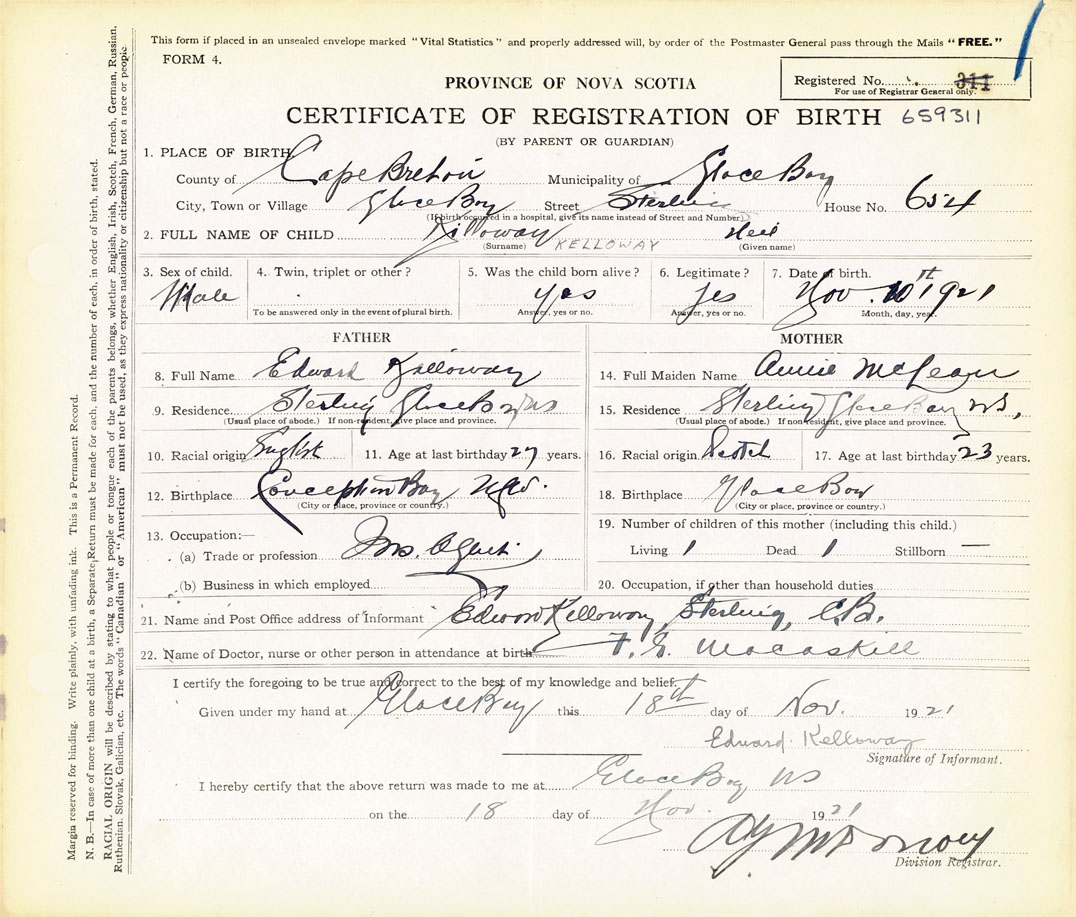 This form if placed in an unsealed envelope marked "Vital Statistics" and properly addressed will, by order of the Postmaster General pass through the Mails "FREE."
FORM 4.
Registered No. 311
For use of Registrar General only.
PROVINCE OF NOVA SCOTIA
CERTIFICATE OF REGISTRATION OF BIRTH 659311
(BY PARENT OR GUARDIAN)
1. PLACE OF BIRTH
County of Cape Breton Municipality of Glace Bay
City, Town or Village Glace Bay Street Sterling House No. 654
(If birth occured in a hospital, give its name instead of Street and Number)
2. FULL NAME OF CHILD Kelloway Neil
(Surname) KELLOWAY (Given name)
3. Sex of child. 4. Twin, triplet or other ? 5. Was the child born alive ? 6. Legitimate ? 7. Date of birth.
Male yes yes Nov. 10th 1921
To be answered only in the event of plural birth. Answer, yes or no. Answer, yes or no. Month, day, year.
FATHER MOTHER
8. Full Name Edward Kelloway 14. Full Maiden Name Annie McLean
9. Residence Sterling Glace Bay NS 15. Residence Sterling Glace Bay NS,
(Usual place of abode.) If non-resident, give place and province. (Usual place of abode.) If non resident, give place and province.
10. Racial origin English 11. Age at last birthday 27 years. 16. Racial origin Scotch 17. Age at last birthday 23 years.
12. Birthplace Conception Bay Nfld. 18. Birthplace Glace Bay
(City or place, province or country.) (City or place, province or country.)
13. Occupation:— 19. Number of children of this mother (including this child.)
(a) Trade or profession Ins. Agent Living 1 Dead 1 Stillborn —
(b) Business in which employed 20. Occupation, if other than household duties
21. Name and Post Office address of Informant Edward Kelloway, Sterling, C.B.
22. Name of Doctor, nurse or other person in attendance at birth Macaskill
I certify the foregoing to be true and correct to the best of my knowledge and belief.
Given under my hand at Glace Bay this 18th day of Nov. 1921
Edward Kelloway
Signature of Informant.
I hereby certify that the above return was made to me at Glace Bay NS
on the 18 day of Nov. 1921
Division Registrar.
Margin reserved for binding. Write plainly, with unfading ink. This is a Permanent Record.
N. B.—In case of more than one child at a birth, a Separate Return must be made for each, and the number of each, in order of birth, stated.
RACIAL ORIGIN will be described by stating to what people or tongue each of the parents belongs, whether English, Irish, Scotch, French, German, Russian.
Ruthenian. Slovak, Galician, etc. The words "Canadian" or "American" must not be used, as they express nationality or citizenship but not a race or people.